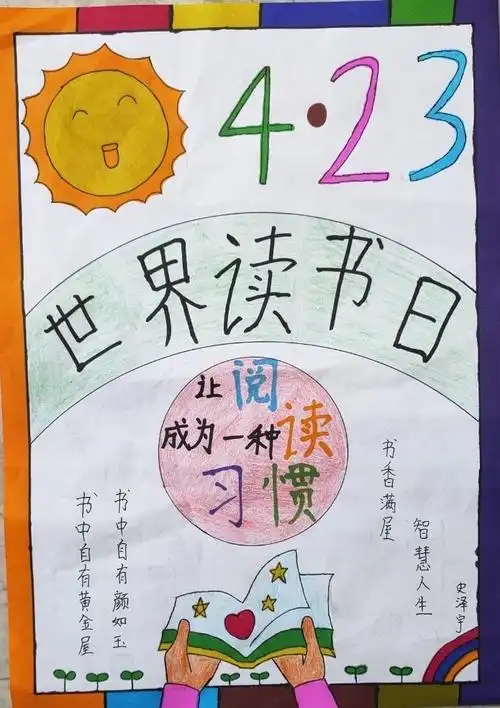 4·23
世界读书日
让阅读
成为一种
习惯
书香满屋
智慧人生
史泽宇
书中自有颜如玉
书中自有黄金屋